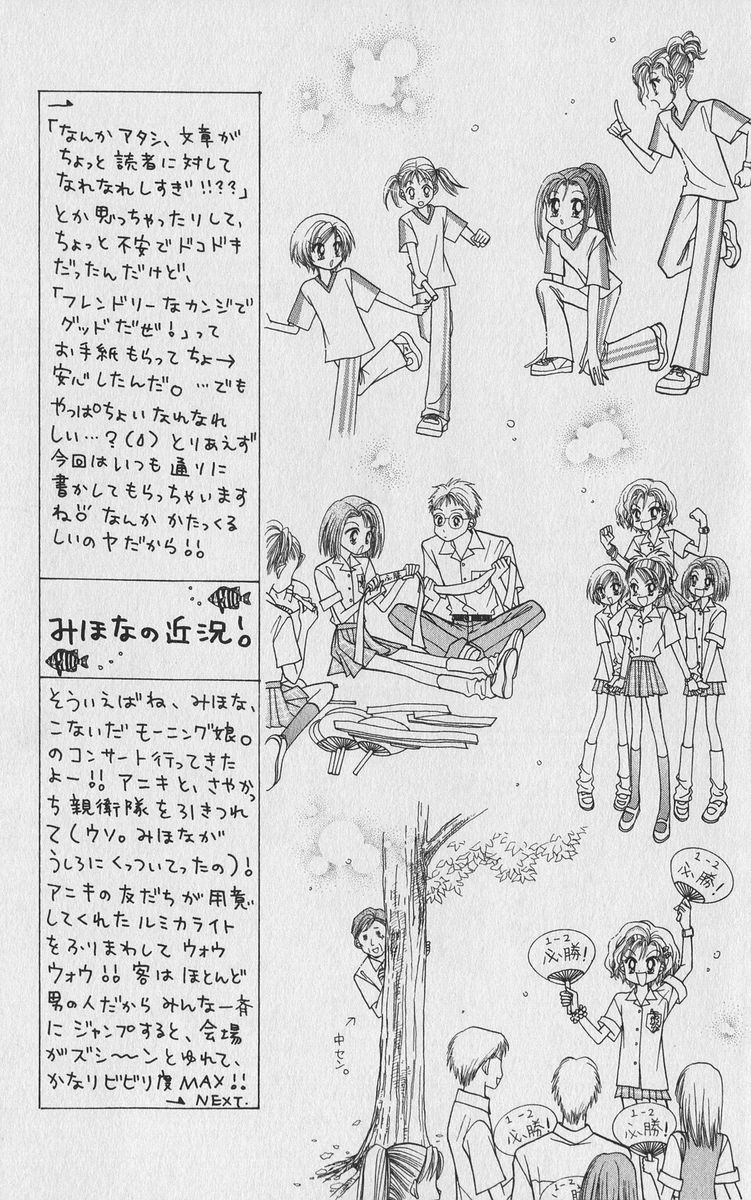 →
「なんか アタシ、文章が
ちょっと 読者に対して
なれなれしすぎ!!??」
とか思っちゃったりして、
ちょっと 不安で ドコドキ
だったんだけど、
「フレンドリーなカンジで
グッドだぜ!」って
お手紙もらって ちょ→
安心したんだ。…でも
やっぱちょい なれなれ
しい…?(δ) とりあえず
今回は いつも 通りに
書かしてもらっちゃいます
ね なんか かたっくる
しいのヤだから!!
みほなの近況!
そういえばね、みほな、
こないだ モーニング娘。
のコンサート行ってきた
よー!! アニキと、さやかっ
ち 親衛隊を引きつれ
て(ウソ。みほなが
うしろにくっついてったの)!
アニキの友だちが用意
してくれた ルミカライト
をふりまわして ウォウ
ウォウ!! 客は ほとんど
男の人だから みんな一斉
に ジャンプすると、会場
がズシ〜〜ンとゆれて、
かなりビビり度 MAX!!
→ NEXT.
1-2
必勝!
1-2
必勝!
↑
中セン。
1-2
必勝!
1-2
必勝!